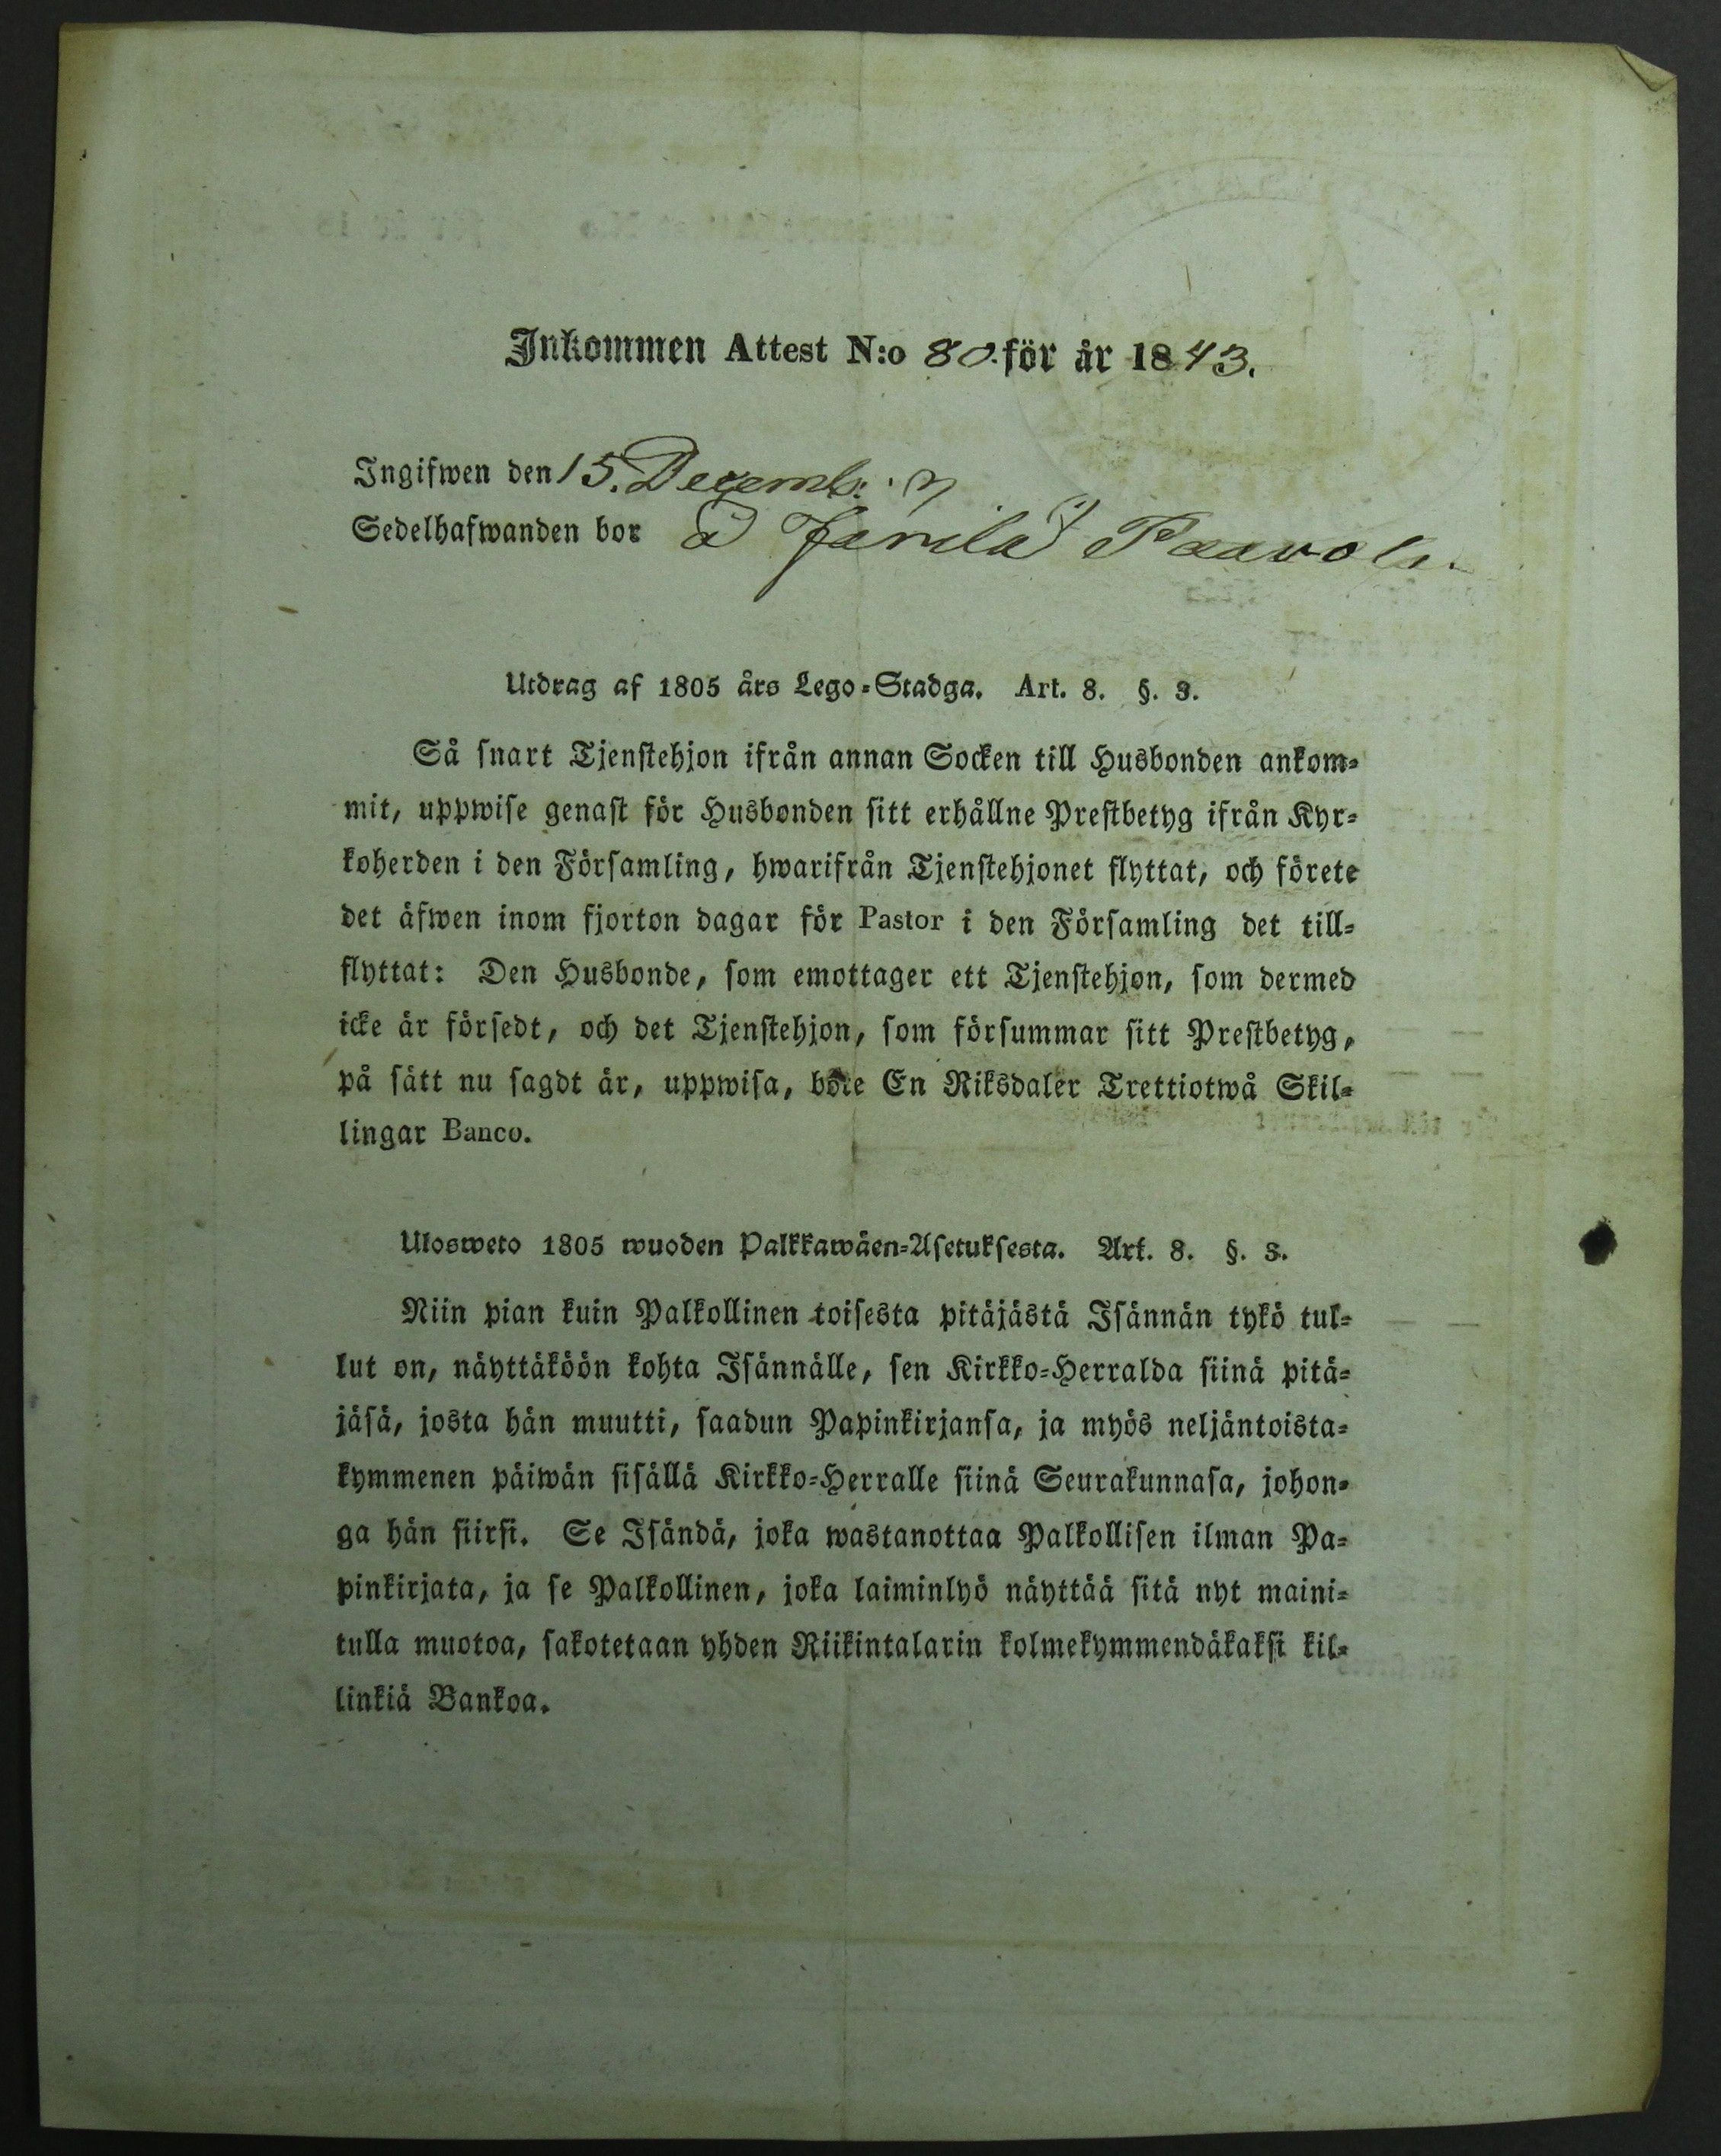 Inkommen Attest N:o 80. för år 1843.
Ingifwen den 15. Decemb:
Sedelhafwanden bor å Jänilä Paavola.
Utdrag af 1805 års Lego-Stadga. Art. 8. §. 3.
Så snart Tjenstehjon ifrån annan Socken till Husbonden ankom-
mit, uppwise genast för Husbonden sitt erhållne Prestbetyg ifrån Kyr-
koherden i den Församling, hwarifrån Tjenstehjonet flyttat, och förete
det äfwen inom fjorton dagar för Pastor i den Församling det till-
flyttat: Den Husbonde, som emottager ett Tjenstehjon, som dermed
icke är försedt, och det Tjenstehjon, som försummar sitt Prestbetyg,
på sätt nu sagdt är, uppwisa, böte En Riksdaler Trettiotwå Skil-
lingar Banco.
Ulosweto 1805 wuoden Palkkawäen-Asetuksesta. Art. 8. §. 3.
Niin pian kuin Palkollinen toisesta pitäjästä Isännän tykö tul-
lut on, näyttäköön kohta Isännälle, sen Kirkko-Herralda siinä pitä-
jäsä, josta hän muutti, saadun Papinkirjansa, ja myös neljäntoista-
kymmenen päiwän sisällä Kirkko-Herralle siinä Seurakunnasa, johon-
ga hän siirsi. Se Isändä, joka wastanottaa Palkollisen ilman Pa-
pinkirjata, ja se Palkollinen, joka laiminlyö näyttää sitä nyt maini-
tulla muotoa, sakotetaan yhden Riikintalarin kolmekymmendäkaksi kil-
linkiä Bankoa.